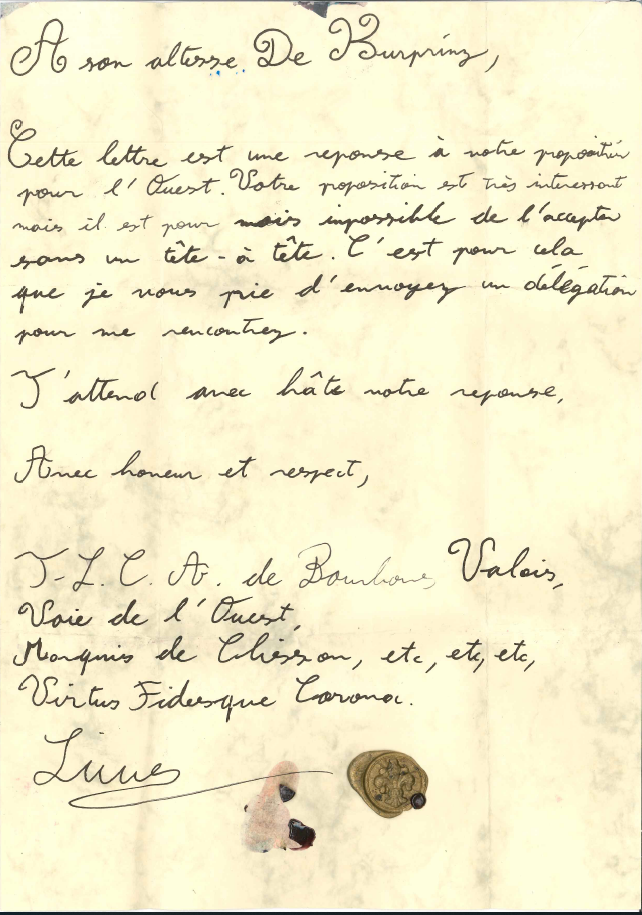 A son altesse De Kurprinz,
Cette lettre est une reponse à votre proposition
pour l'Ouest. Votre proposition est très interessant
mais il est pour mois impossible de l'accepter
sans un tête-à tête. C'est pour cela
que je vous prie d'envoyez un délégation
pour me rencontrez.
J'attend avec hâte votre reponse,
Avec honeur et respect,
J-L. C. A. de Bourbons Valois,
Voie de l'Ouest,
Marquis de Clisson, etc, etc, etc,
Virtus Fidesque Corona.